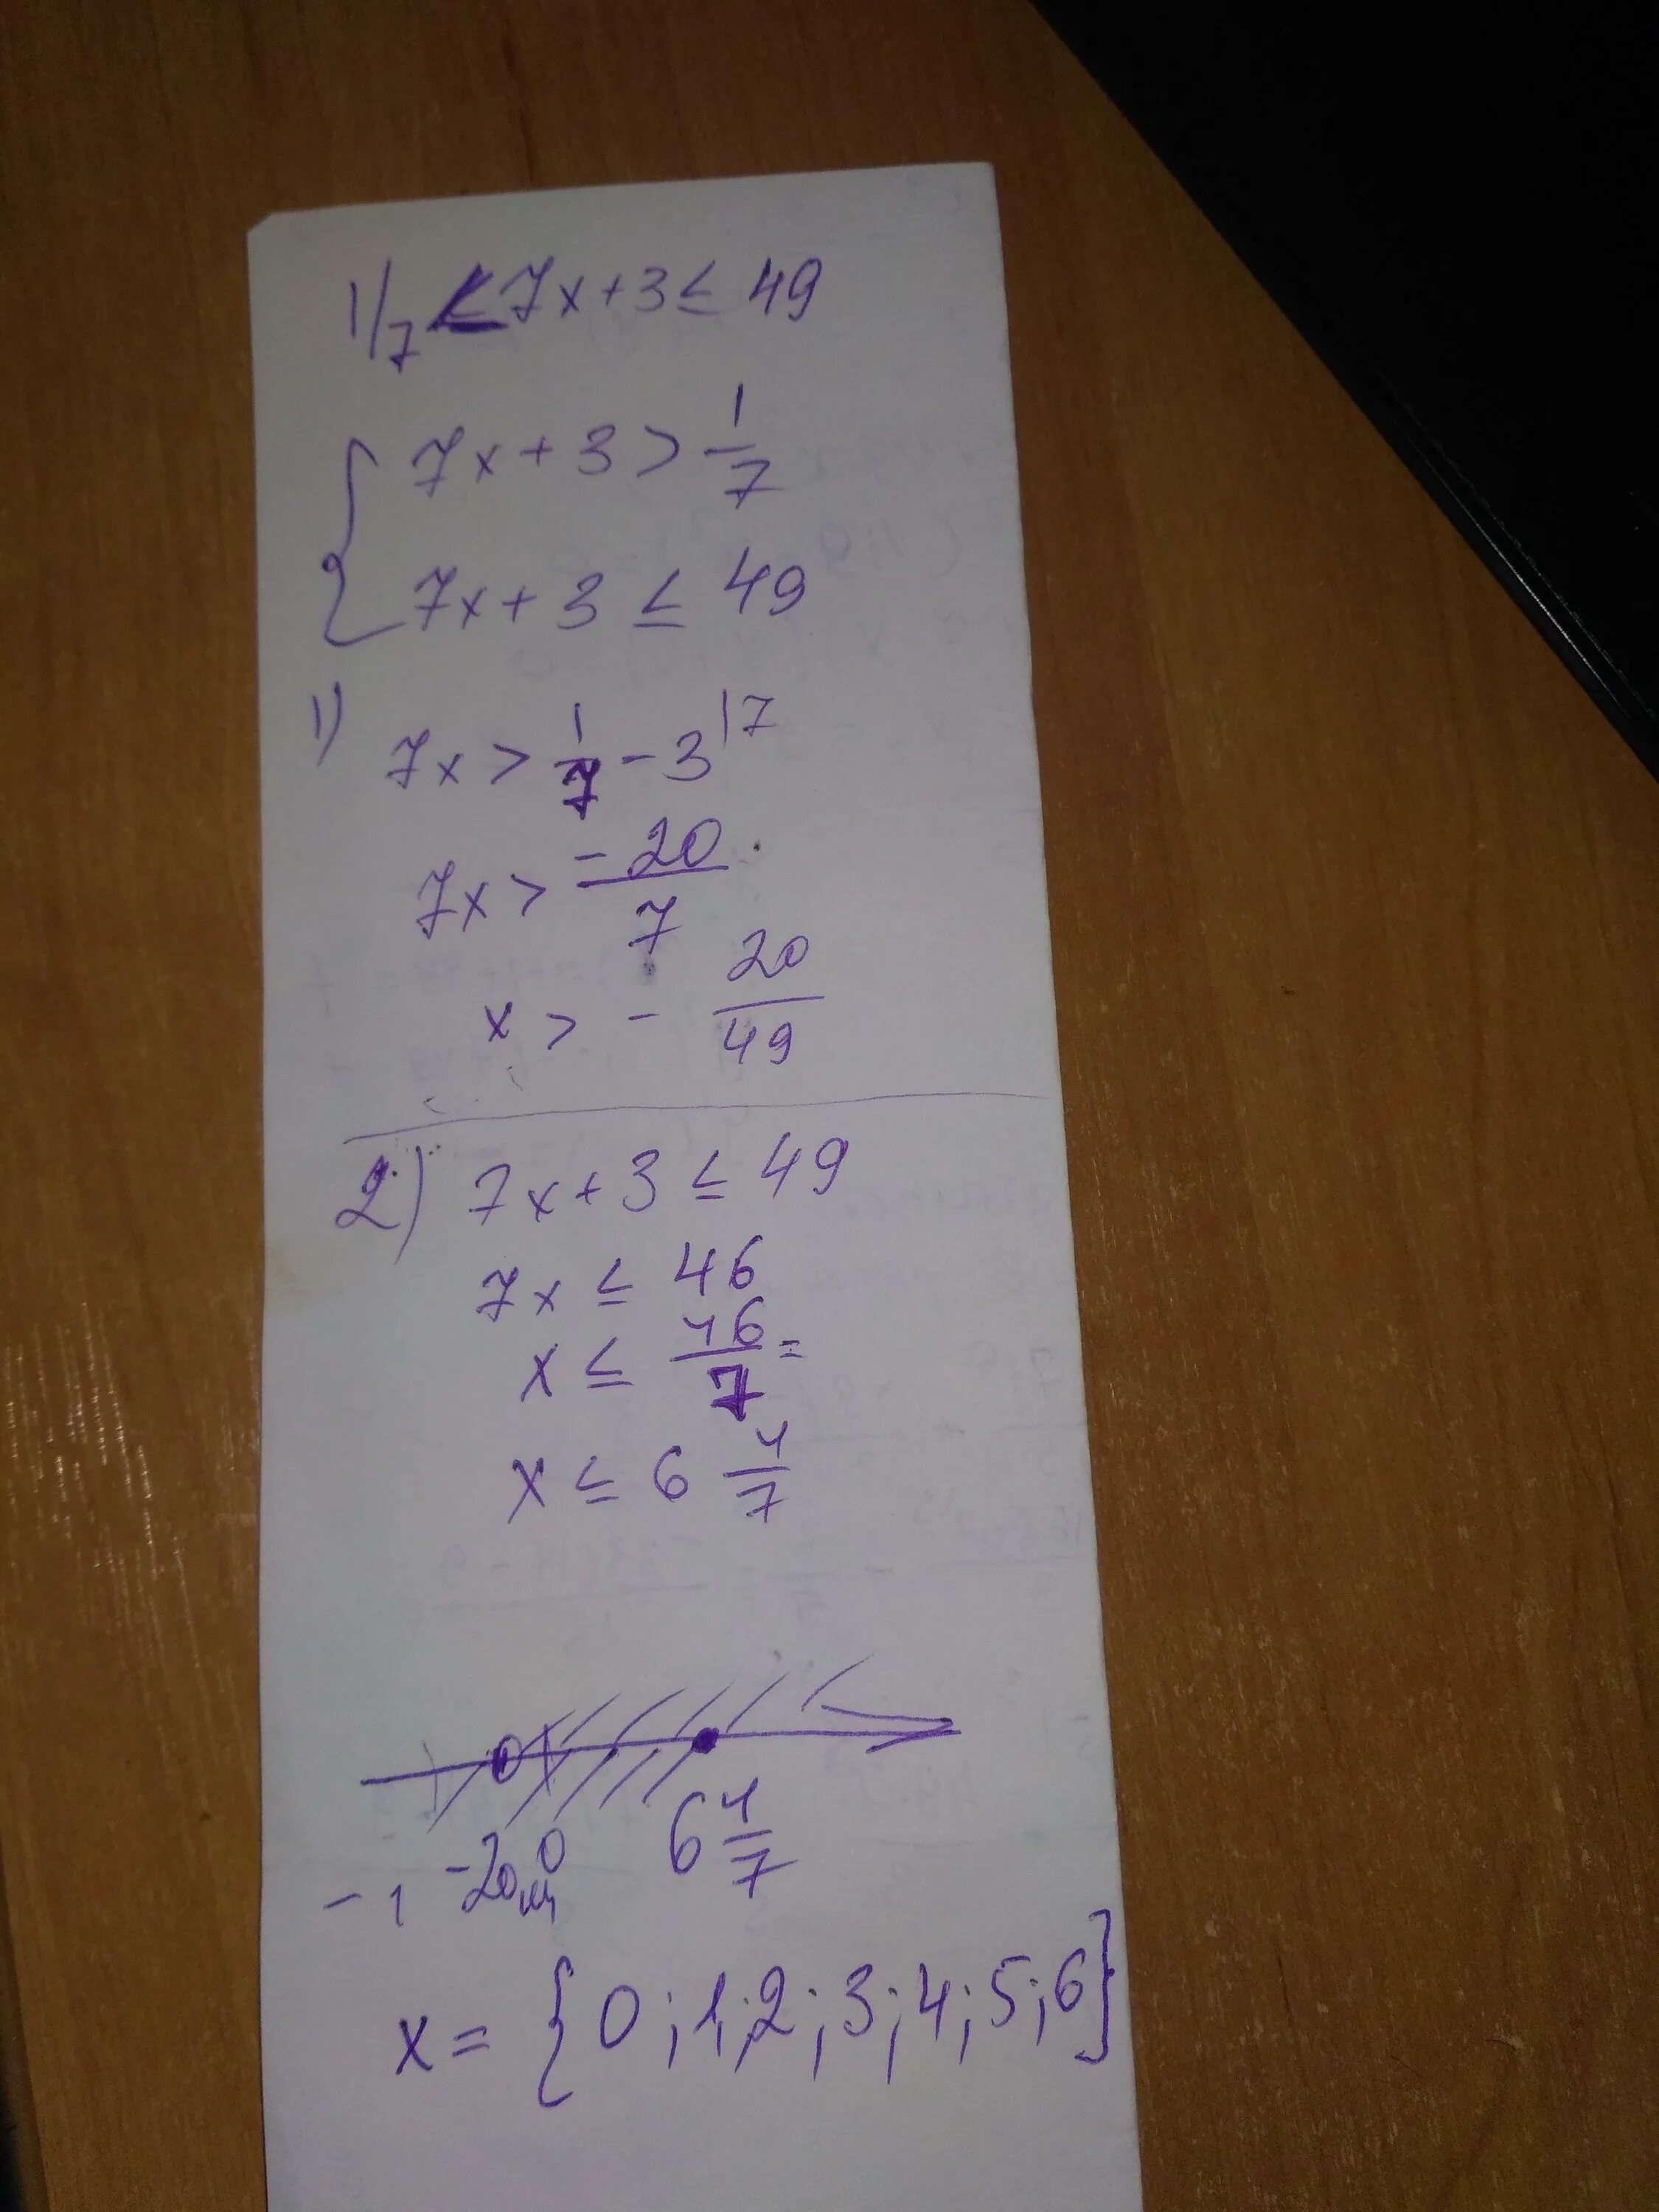 1/7 ≤ 7x+3 ≤ 49
7x+3 > 1/7
7x+3 ≤ 49
1) 7x > 1/7 - 3 |7
7x > -20/7
x > - 20/49
2) 7x+3 ≤ 49
7x ≤ 46
x ≤ 46/7 =
x ≤ 6 4/7
-1 -20/49 0 6 4/7
x = {0;1;2;3;4;5;6}